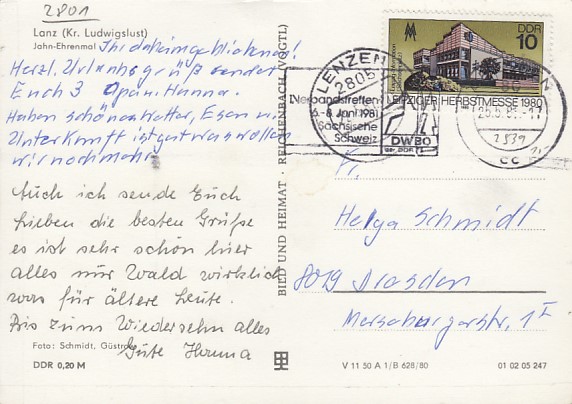 2801
Lanz (Kr. Ludwigslust)
Jahn-Ehrenmal
Ihr daheimgebliebenen!
Herzl. Urlaubsgrüße sendet
Euch 3 Opa u. Hanna.
Haben schönes Wetter, Essen u.
Unterkunft ist gut was wollen
wir noch mehr.
Auch ich sende Euch
lieben die besten Grüße
es ist sehr schön hier
alles nur Wald wirklich
was für ältere Leute.
Bis zum Wiedersehn alles
Gute Hanna
Foto: Schmidt, Güstrow
DDR 0,20 M
BILD UND HEIMAT · REICHENBACH (VOGTL)
LENZEN
2805
Verbandstreffen
6.-8. Juni 1981
Sächsische
Schweiz
DWBO
der DDR
DDR
10
LEIPZIGER HERBSTMESSE 1980
2539
cc
Fr.
Helga Schmidt
8019 Dresden
Merseburgerstr. 1 I
V 11 50 A 1/B 628/80
01 02 05 247